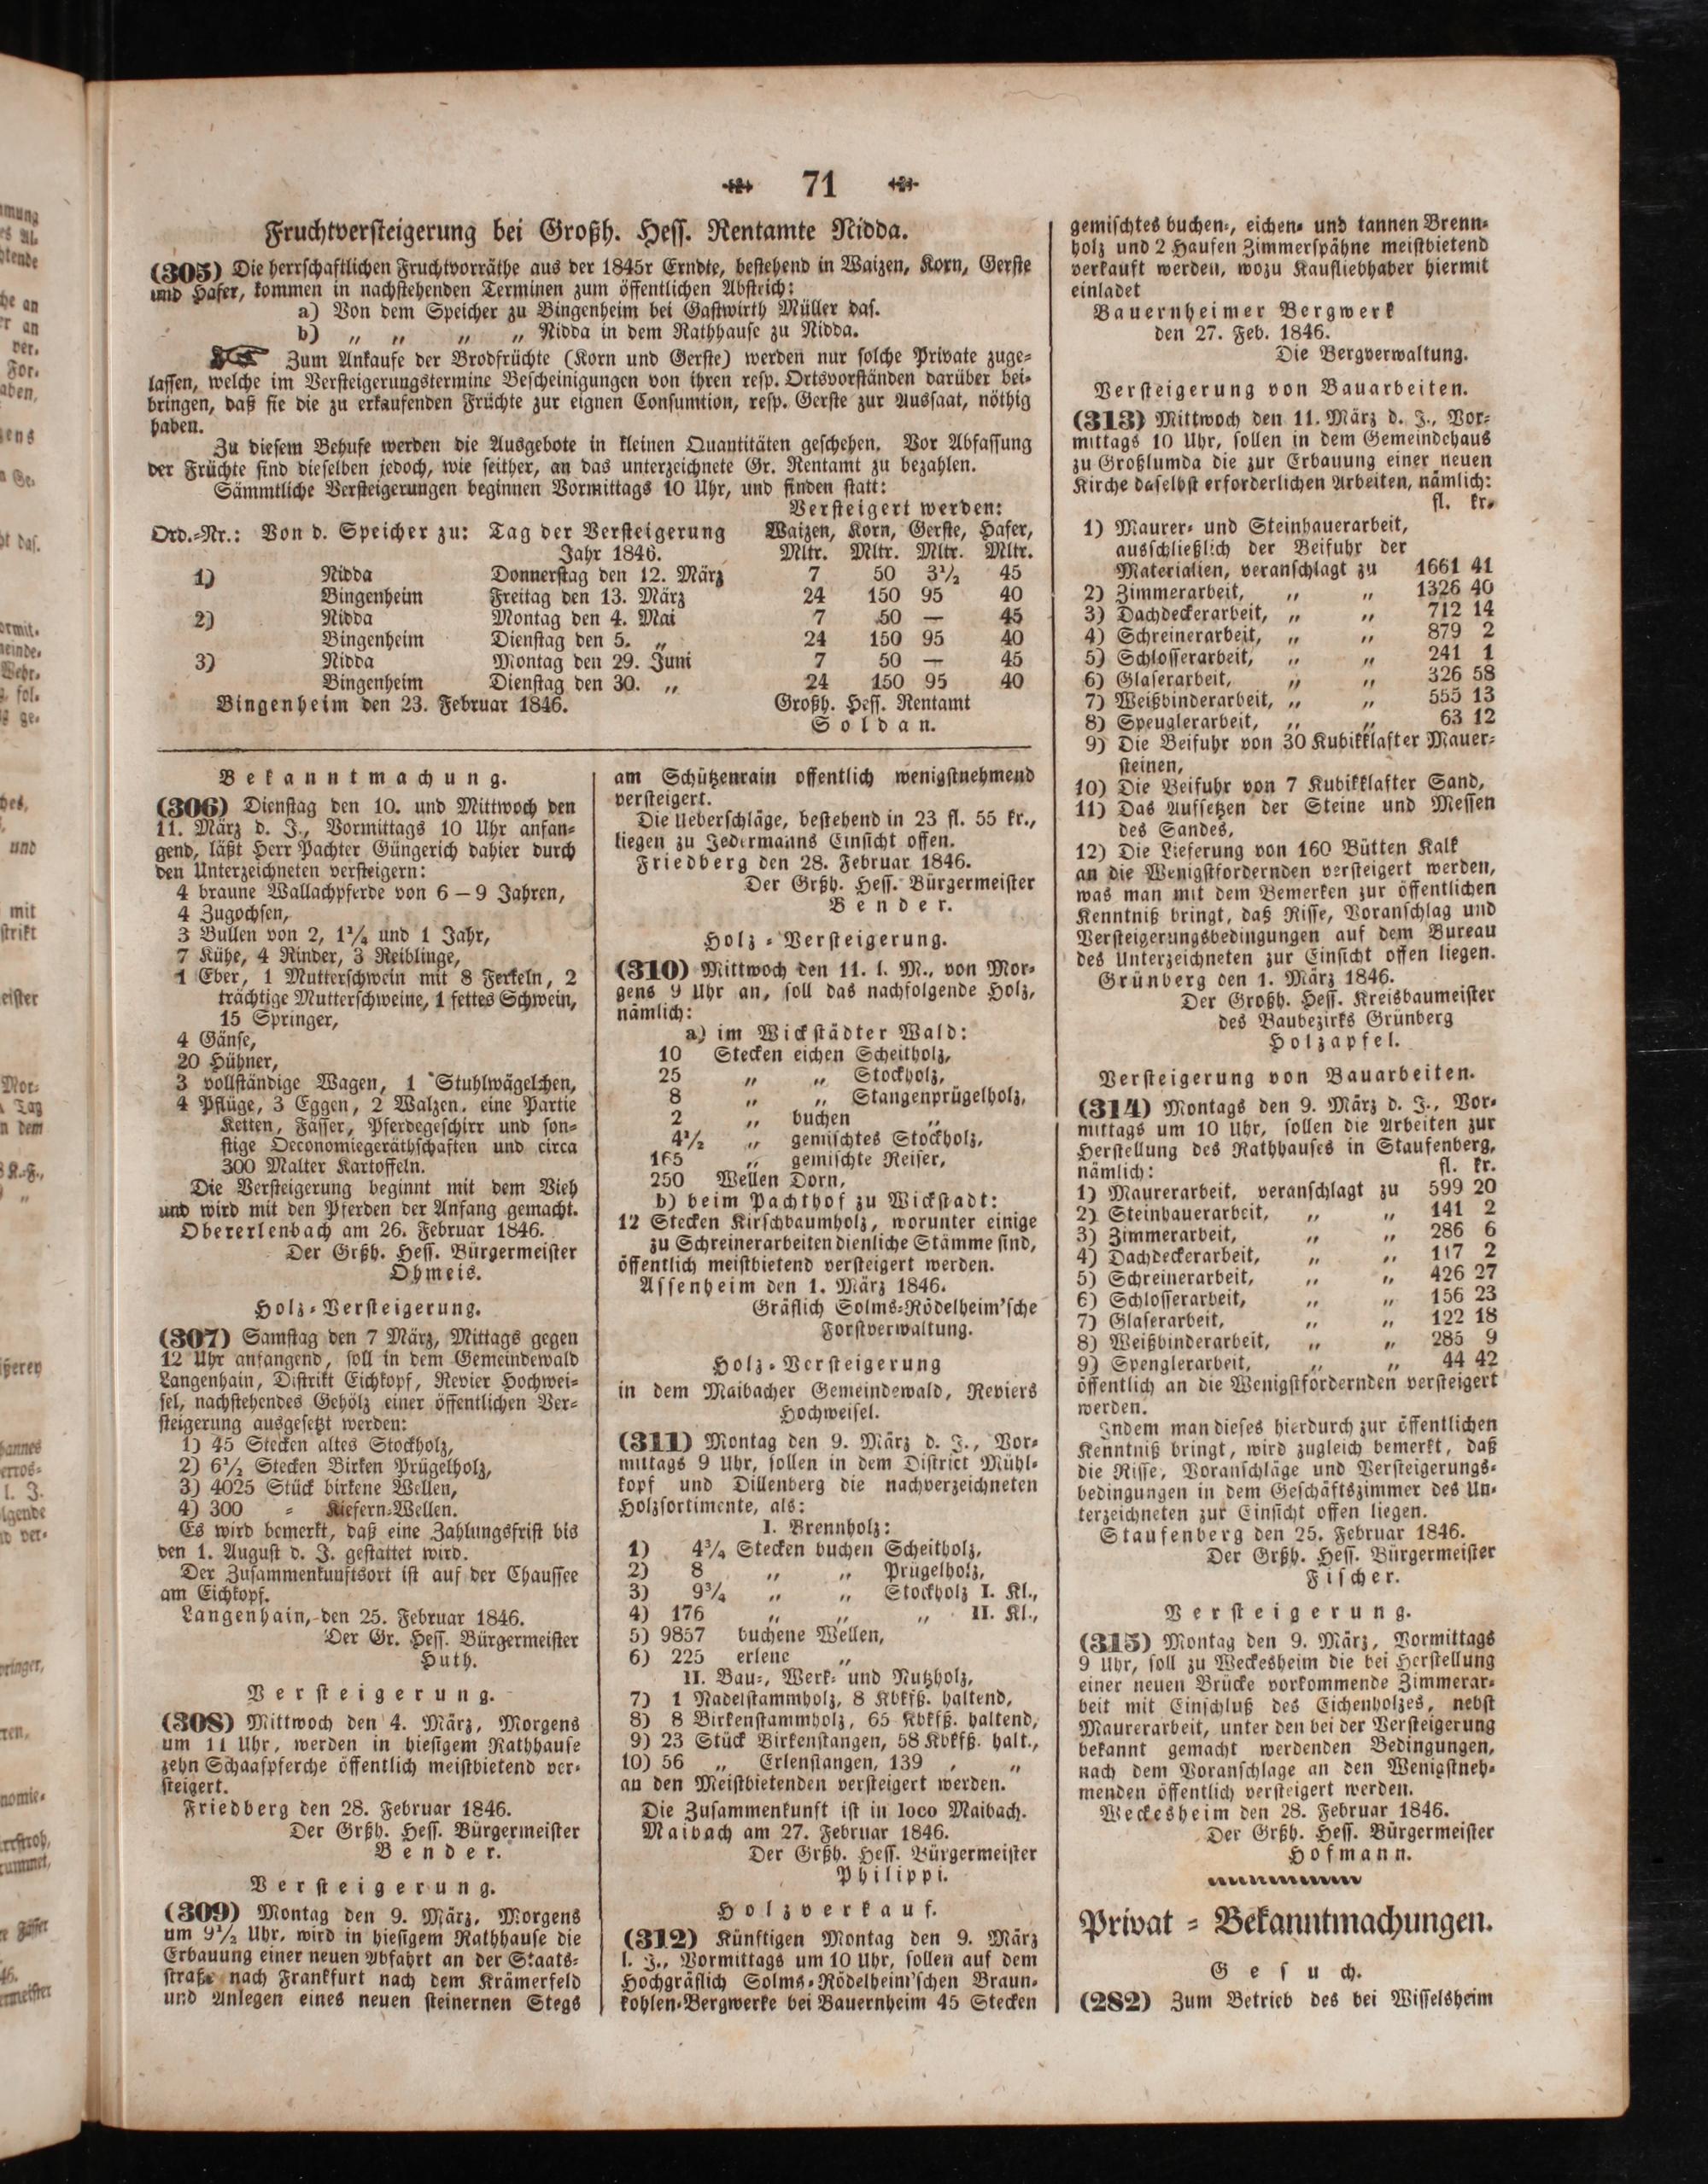 71
Fruchtversteigerung bei Großh. Hess. Rentamte Nidda.
(305) Die herrschaftlichen Fruchtvorräthe aus der 1845r Erndte, bestehend in Waizen, Korn, Gerste
und Hafer, kommen in nachstehenden Terminen zum öffentlichen Abstrich:
a) Von dem Speicher zu Bingenheim bei Gastwirth Müller das.
b) „ „ „ „ Nidda in dem Rathhause zu Nidda.
☞ Zum Ankaufe der Brodfrüchte (Korn und Gerste) werden nur solche Private zuge=
lassen, welche im Versteigerungstermine Bescheinigungen von ihren resp. Ortsvorständen darüber bei=
bringen, daß sie die zu erkaufenden Früchte zur eignen Consumtion, resp. Gerste zur Aussaat, nöthig
haben.
Zu diesem Behufe werden die Ausgebote in kleinen Quantitäten geschehen. Vor Abfassung
der Früchte sind dieselben jedoch, wie seither, an das unterzeichnete Gr. Rentamt zu bezahlen.
Sämmtliche Versteigerungen beginnen Vormittags 10 Uhr, und finden statt:
Versteigert werden:
Ord.=Nr.: Von d. Speicher zu: Tag der Versteigerung Waizen, Korn, Gerste, Hafer,
Jahr 1846. Mltr. Mltr. Mltr. Mltr.
1) Nidda Donnerstag den 12. März 7 50 3½ 45
Bingenheim Freitag den 13. März 24 150 95 40
2) Nidda Montag den 4. Mai 7 50 — 45
Bingenheim Dienstag den 5. „ 24 150 95 40
3) Nidda Montag den 29. Juni 7 50 — 45
Bingenheim Dienstag den 30. „ 24 150 95 40
Bingenheim den 23. Februar 1846. Großh. Hess. Rentamt
Soldan.
Bekanntmachung.
(306) Dienstag den 10. und Mittwoch den
11. März d. J., Vormittags 10 Uhr anfan=
gend, läßt Herr Pachter Güngerich dahier durch
den Unterzeichneten versteigern:
4 braune Wallachpferde von 6 — 9 Jahren,
4 Zugochsen,
3 Bullen von 2, 1¾ und 1 Jahr,
7 Kühe, 4 Rinder, 3 Reiblinge,
1 Eber, 1 Mutterschwein mit 8 Ferkeln, 2
trächtige Mutterschweine, 1 fettes Schwein,
15 Springer,
4 Gänse,
20 Hühner,
3 vollständige Wagen, 1 Stuhlwägelchen,
4 Pflüge, 3 Eggen, 2 Walzen, eine Partie
Ketten, Fässer, Pferdegeschirr und son=
stige Oeconomiegeräthschaften und circa
300 Malter Kartoffeln.
Die Versteigerung beginnt mit dem Vieh
und wird mit den Pferden der Anfang gemacht.
Obererlenbach am 26. Februar 1846.
Der Grßh. Hess. Bürgermeister
Ohmeis.
Holz=Versteigerung.
(307) Samstag den 7 März, Mittags gegen
12 Uhr anfangend, soll in dem Gemeindewald
Langenhain, Distrikt Eichkopf, Revier Hochwei=
sel, nachstehendes Gehölz einer öffentlichen Ver=
steigerung ausgesetzt werden:
1) 45 Stecken altes Stockholz,
2) 6½ Stecken Birken Prügelholz,
3) 4025 Stück birkene Wellen,
4) 300 = Kiefern=Wellen.
Es wird bemerkt, daß eine Zahlungsfrist bis
den 1. August d. J. gestattet wird.
Der Zusammenkunftsort ist auf der Chaussee
am Eichkopf.
Langenhain, den 25. Februar 1846.
Der Gr. Hess. Bürgermeister
Huth.
Versteigerung.
(308) Mittwoch den 4. März, Morgens
um 11 Uhr, werden in hiesigem Rathhause
zehn Schaafpferche öffentlich meistbietend ver=
steigert.
Friedberg den 28. Februar 1846.
Der Grßh. Hess. Bürgermeister
Bender.
Versteigerung.
(309) Montag den 9. März, Morgens
um 9½ Uhr, wird in hiesigem Rathhause die
Erbauung einer neuen Abfahrt an der Staats=
straße nach Frankfurt nach dem Krämerfeld
und Anlegen eines neuen steinernen Stegs
am Schützenrain offentlich wenigstnehmend
versteigert.
Die Ueberschläge, bestehend in 23 fl. 55 kr.,
liegen zu Jedermanns Einsicht offen.
Friedberg den 28. Februar 1846.
Der Grßh. Hess. Bürgermeister
Bender.
Holz=Versteigerung.
(310) Mittwoch den 11. l. M., von Mor=
gens 9 Uhr an, soll das nachfolgende Holz,
nämlich:
a) im Wickstädter Wald:
10 Stecken eichen Scheitholz,
25 „ „ Stockholz,
8 „ „ Stangenprügelholz,
2 „ buchen „
4½ „ gemischtes Stockholz,
165 „ gemischte Reiser,
250 Wellen Dorn,
b) beim Pachthof zu Wickstadt:
12 Stecken Kirschbaumholz, worunter einige
zu Schreinerarbeiten dienliche Stämme sind,
öffentlich meistbietend versteigert werden.
Assenheim den 1. März 1846.
Gräflich Solms=Rödelheim'sche
Forstverwaltung.
Holz=Versteigerung
in dem Maibacher Gemeindewald, Reviers
Hochweisel.
(311) Montag den 9. März d. J., Vor=
mittags 9 Uhr, sollen in dem District Mühl=
kopf und Dillenberg die nachverzeichneten
Holzsortimente, als:
I. Brennholz:
1) 4¾ Stecken buchen Scheitholz,
2) 8 „ „ Prügelholz,
3) 9¾ „ „ Stockholz I. Kl.,
4) 176 „ „ „ II. Kl.,
5) 9857 buchene Wellen,
6) 225 erlene „
II. Bau=, Werk= und Nutzholz,
7) 1 Nadelstammholz, 8 Kbkfß. haltend,
8) 8 Birkenstammholz, 65 Kbkfß. haltend,
9) 23 Stück Birkenstangen, 58 Kbkfß. halt.,
10) 56 „ Erlenstangen, 139 „ „
an den Meistbietenden versteigert werden.
Die Zusammenkunft ist in loco Maibach.
Maibach am 27. Februar 1846.
Der Grßh. Hess. Bürgermeister
Philippi.
Holzverkauf.
(312) Künftigen Montag den 9. März
l. J., Vormittags um 10 Uhr, sollen auf dem
Hochgräflich Solms=Rödelheim'schen Braun=
kohlen=Bergwerke bei Bauernheim 45 Stecken
gemischtes buchen=, eichen= und tannen Brenn=
holz und 2 Haufen Zimmerspähne meistbietend
verkauft werden, wozu Kaufliebhaber hiermit
einladet
Bauernheimer Bergwerk
den 27. Feb. 1846.
Die Bergverwaltung.
Versteigerung von Bauarbeiten.
(313) Mittwoch den 11. März d. J., Vor=
mittags 10 Uhr, sollen in dem Gemeindehaus
zu Großlumda die zur Erbauung einer neuen
Kirche daselbst erforderlichen Arbeiten, nämlich:
fl. kr.
1) Maurer= und Steinhauerarbeit,
ausschließlich der Beifuhr der
Materialien, veranschlagt zu 1661 41
2) Zimmerarbeit, „ „ 1326 40
3) Dachdeckerarbeit, „ „ 712 14
4) Schreinerarbeit, „ „ 879 2
5) Schlosserarbeit, „ „ 241 1
6) Glaserarbeit, „ „ 326 58
7) Weißbinderarbeit, „ „ 555 13
8) Speuglerarbeit, „ „ 63 12
9) Die Beifuhr von 30 Kubikklafter Mauer=
steinen,
10) Die Beifuhr von 7 Kubikklafter Sand,
11) Das Aufsetzen der Steine und Messen
des Sandes,
12) Die Lieferung von 160 Bütten Kalk
an die Wenigstfordernden versteigert werden,
was man mit dem Bemerken zur öffentlichen
Kenntniß bringt, daß Risse, Voranschlag und
Versteigerungsbedingungen auf dem Bureau
des Unterzeichneten zur Einsicht offen liegen.
Grünberg den 1. März 1846.
Der Großh. Hess. Kreisbaumeister
des Baubezirks Grünberg
Holzapfel.
Versteigerung von Bauarbeiten.
(314) Montags den 9. März d. J., Vor=
mittags um 10 Uhr, sollen die Arbeiten zur
Herstellung des Rathhauses in Staufenberg,
nämlich: fl. kr.
1) Maurerarbeit, veranschlagt zu 599 20
2) Steinhauerarbeit, „ „ 141 2
3) Zimmerarbeit, „ „ 286 6
4) Dachdeckerarbeit, „ „ 117 2
5) Schreinerarbeit, „ „ 426 27
6) Schlosserarbeit, „ „ 156 23
7) Glaserarbeit, „ „ 122 18
8) Weißbinderarbeit, „ „ 285 9
9) Spenglerarbeit, „ „ 44 42
öffentlich an die Wenigstfordernden versteigert
werden.
Indem man dieses hierdurch zur öffentlichen
Kenntniß bringt, wird zugleich bemerkt, daß
die Risse, Voranschläge und Versteigerungs=
bedingungen in dem Geschäftszimmer des Un=
terzeichneten zur Einsicht offen liegen.
Staufenberg den 25. Februar 1846.
Der Grßh. Hess. Bürgermeister
Fischer.
Versteigerung.
(315) Montag den 9. März, Vormittags
9 Uhr, soll zu Weckesheim die bei Herstellung
einer neuen Brücke vorkommende Zimmerar=
beit mit Einschluß des Eichenholzes, nebst
Maurerarbeit, unter den bei der Versteigerung
bekannt gemacht werdenden Bedingungen,
nach dem Voranschlage an den Wenigstneh=
menden öffentlich versteigert werden.
Weckesheim den 28. Februar 1846.
Der Grßh. Hess. Bürgermeister
Hofmann.
Privat=Bekanntmachungen.
Gesuch.
(282) Zum Betrieb des bei Wisselsheim